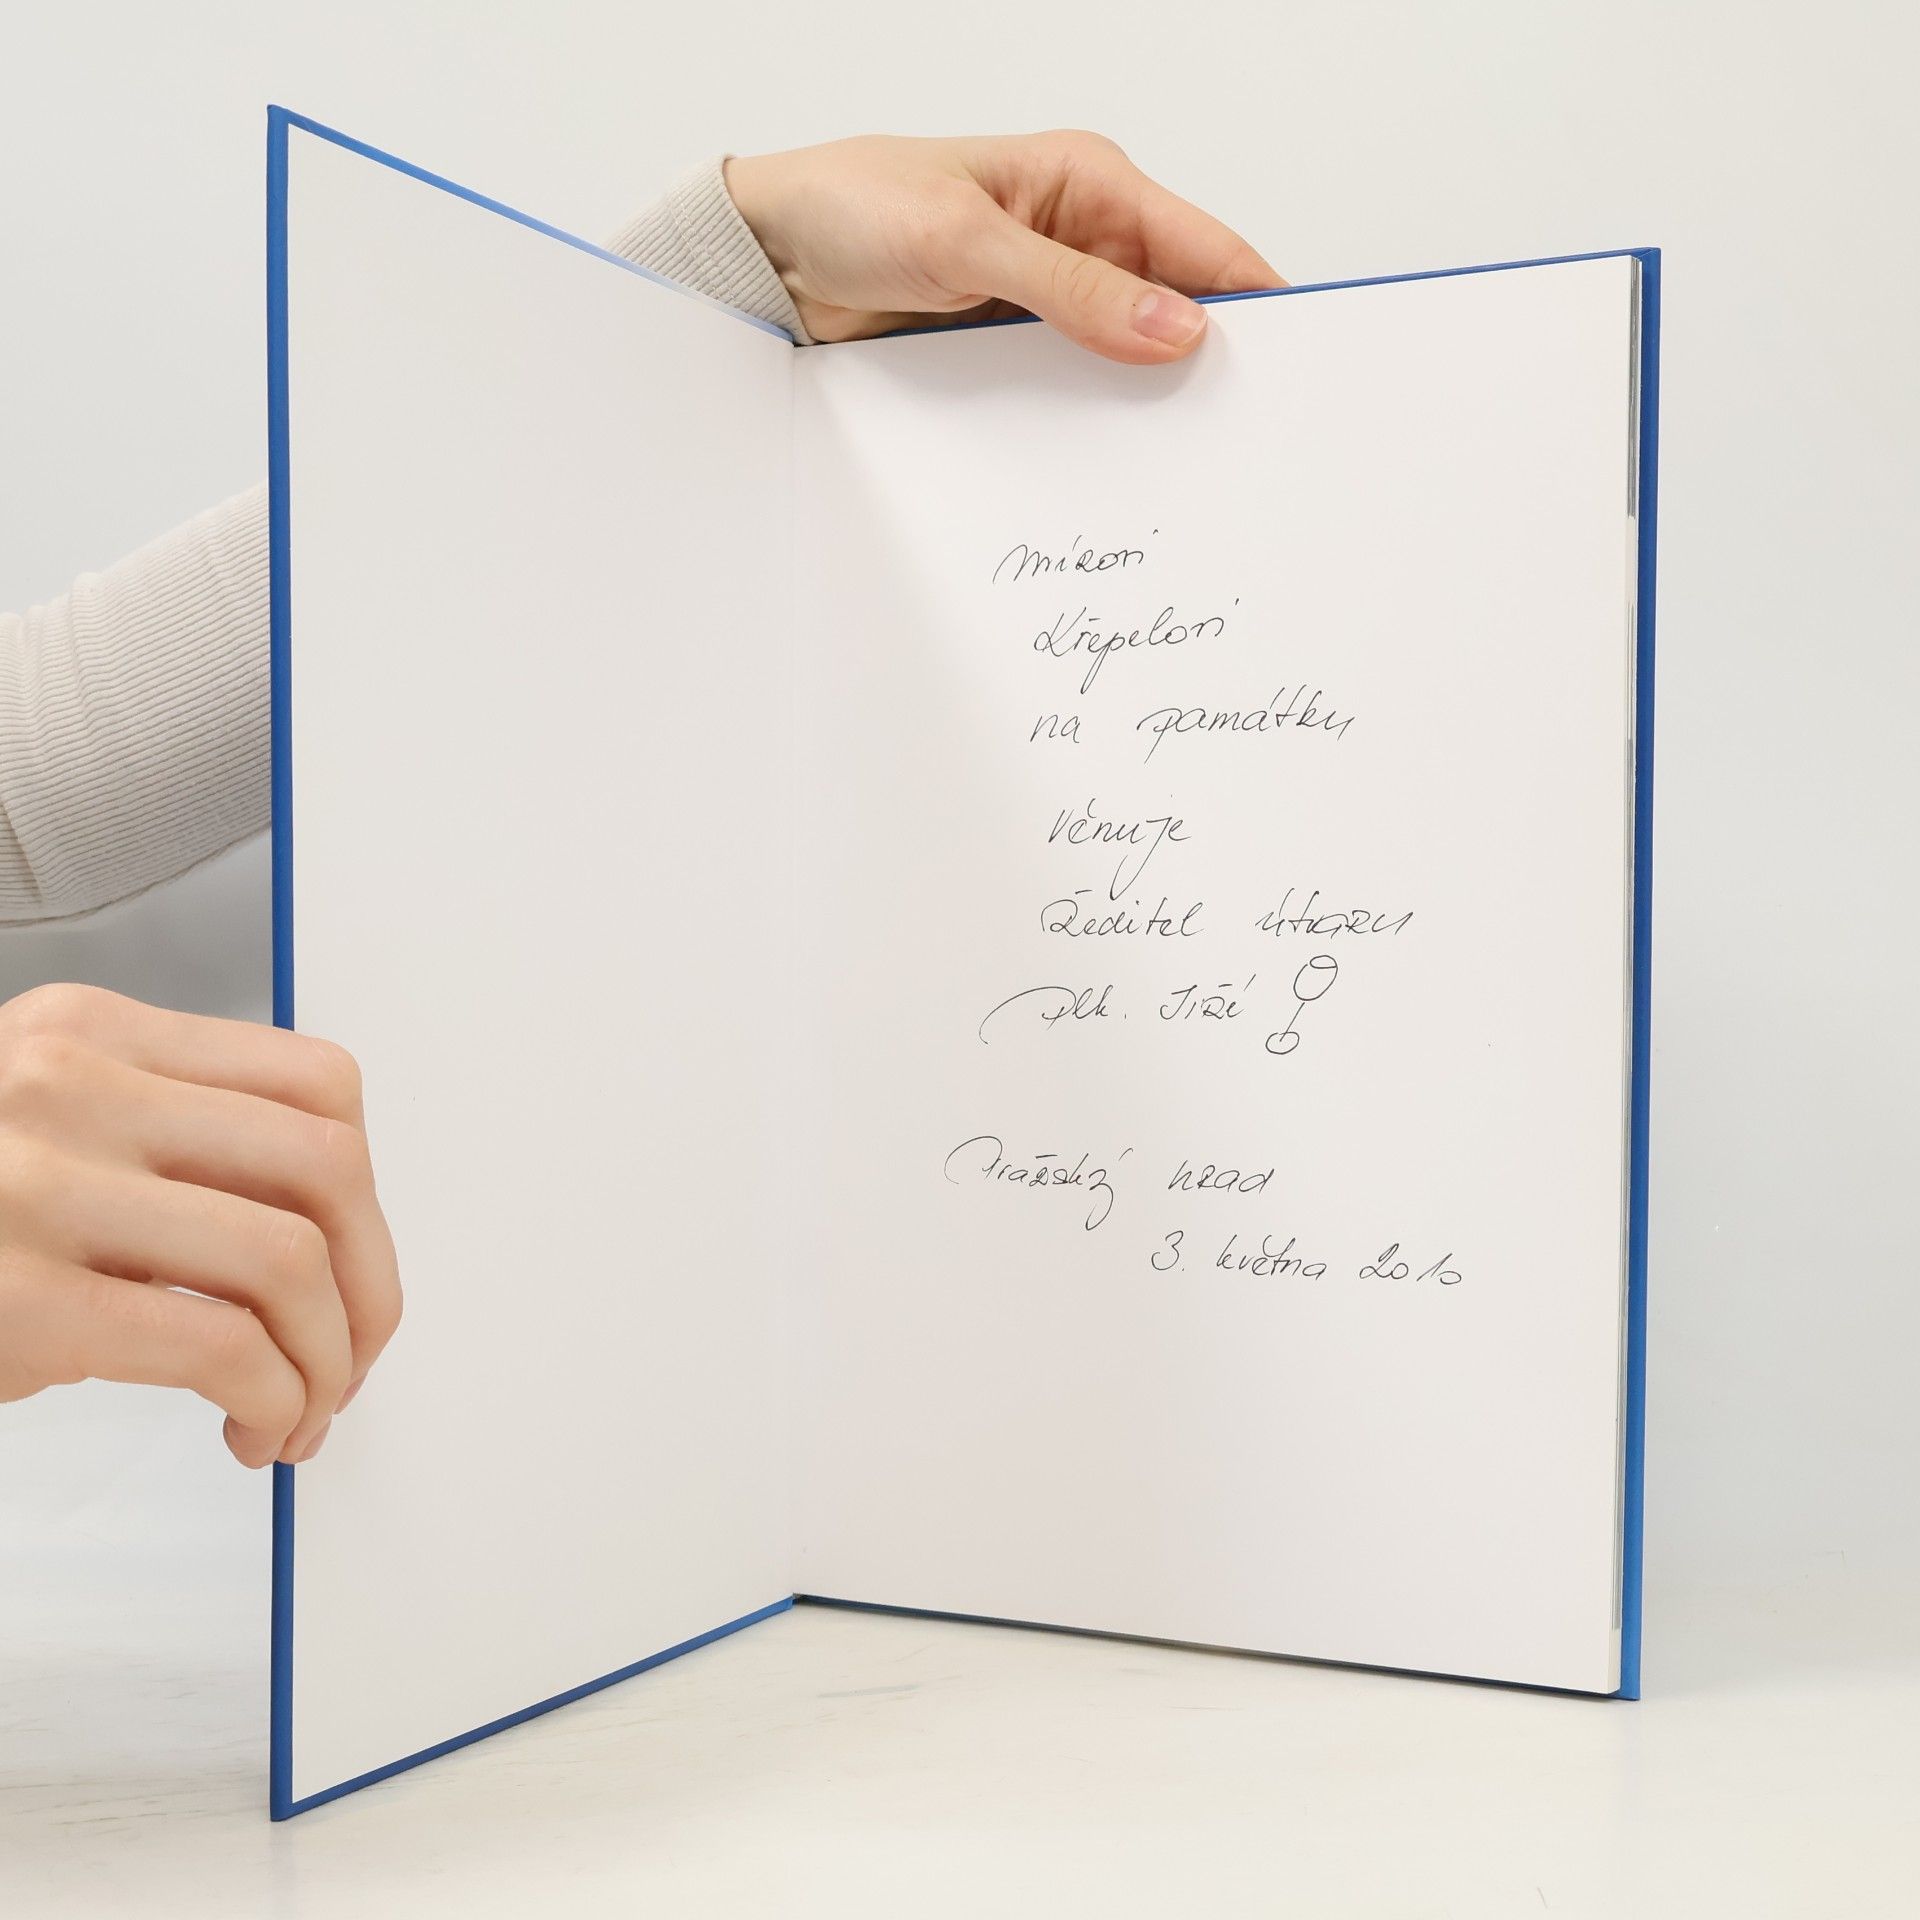 Mírovi
Křepelovi
na památku
věnuje
Ředitel útvaru
Plk. Jiří
Pražský hrad
3. května 2010